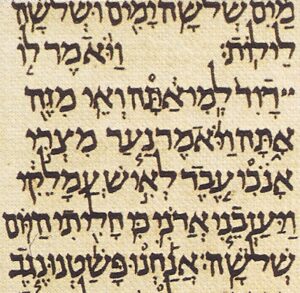 מַיִם שְׁלֹשָׁה יָמִים וּשְׁלֹשָׁה
לֵילוֹת׃ וַיֹּאמֶר לוֹ
דָוִד לְמִי־אַתָּה וְאֵי מִזֶּה
אָתָּה וַיֹּאמֶר נַעַר מִצְרִי
אָנֹכִי עֶבֶד לְאִישׁ עֲמָלֵקִי
וַיַּעַזְבֵנִי אֲדֹנִי כִּי חָלִיתִי הַיּוֹם
שְׁלֹשָׁה׃ אֲנַחְנוּ פָּשַׁטְנוּ נֶגֶב